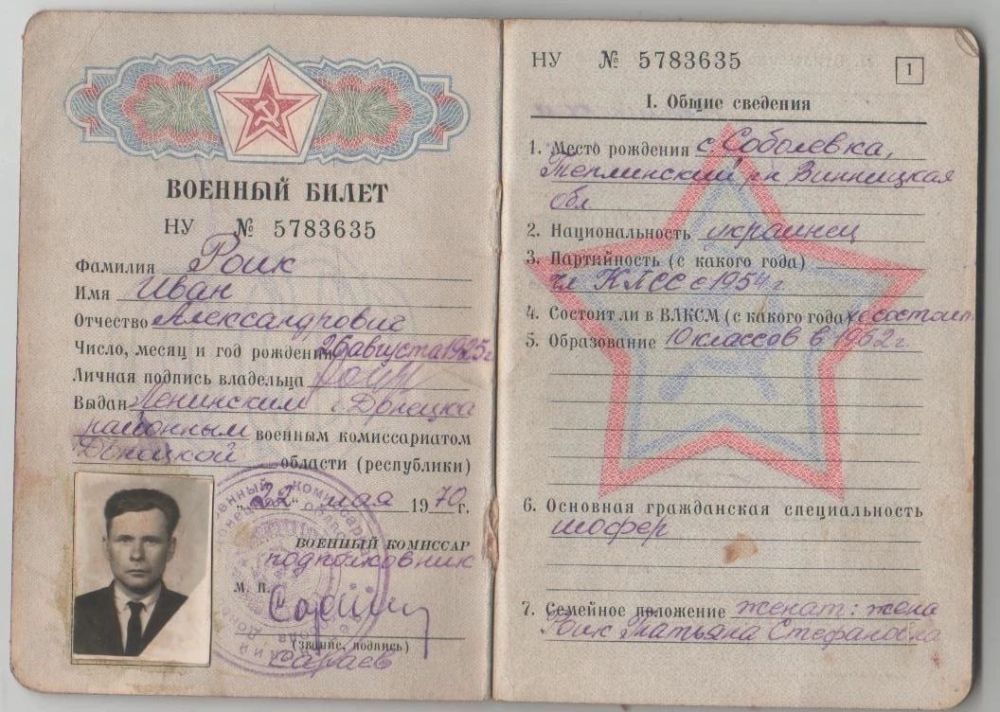 ВОЕННЫЙ БИЛЕТ
НУ № 5783635
Фамилия Роик
Имя Иван
Отчество Александрович
Число, месяц и год рождения 26 августа 1925 г
Личная подпись владельца Роик
Выдан Ленинским г. Донецка
районным военным комиссариатом
Донецкой области (республики)
"22" мая 1970 г.
ВОЕННЫЙ КОМИССАР
подполковник
М. П.
(звание, подпись)
Сараев
НУ № 5783635
1
I. Общие сведения
1. Место рождения с Соболевка,
Теплинский р-н Винницкая
обл
2. Национальность украинец
3. Партийность (с какого года)
чл КПСС с 1954 г
4. Состоит ли в ВЛКСМ (с какого года) не состоит
5. Образование 10 классов в 1962 г
6. Основная гражданская специальность
шофер
7. Семейное положение женат: жена
Роик Татьяна Стефановна